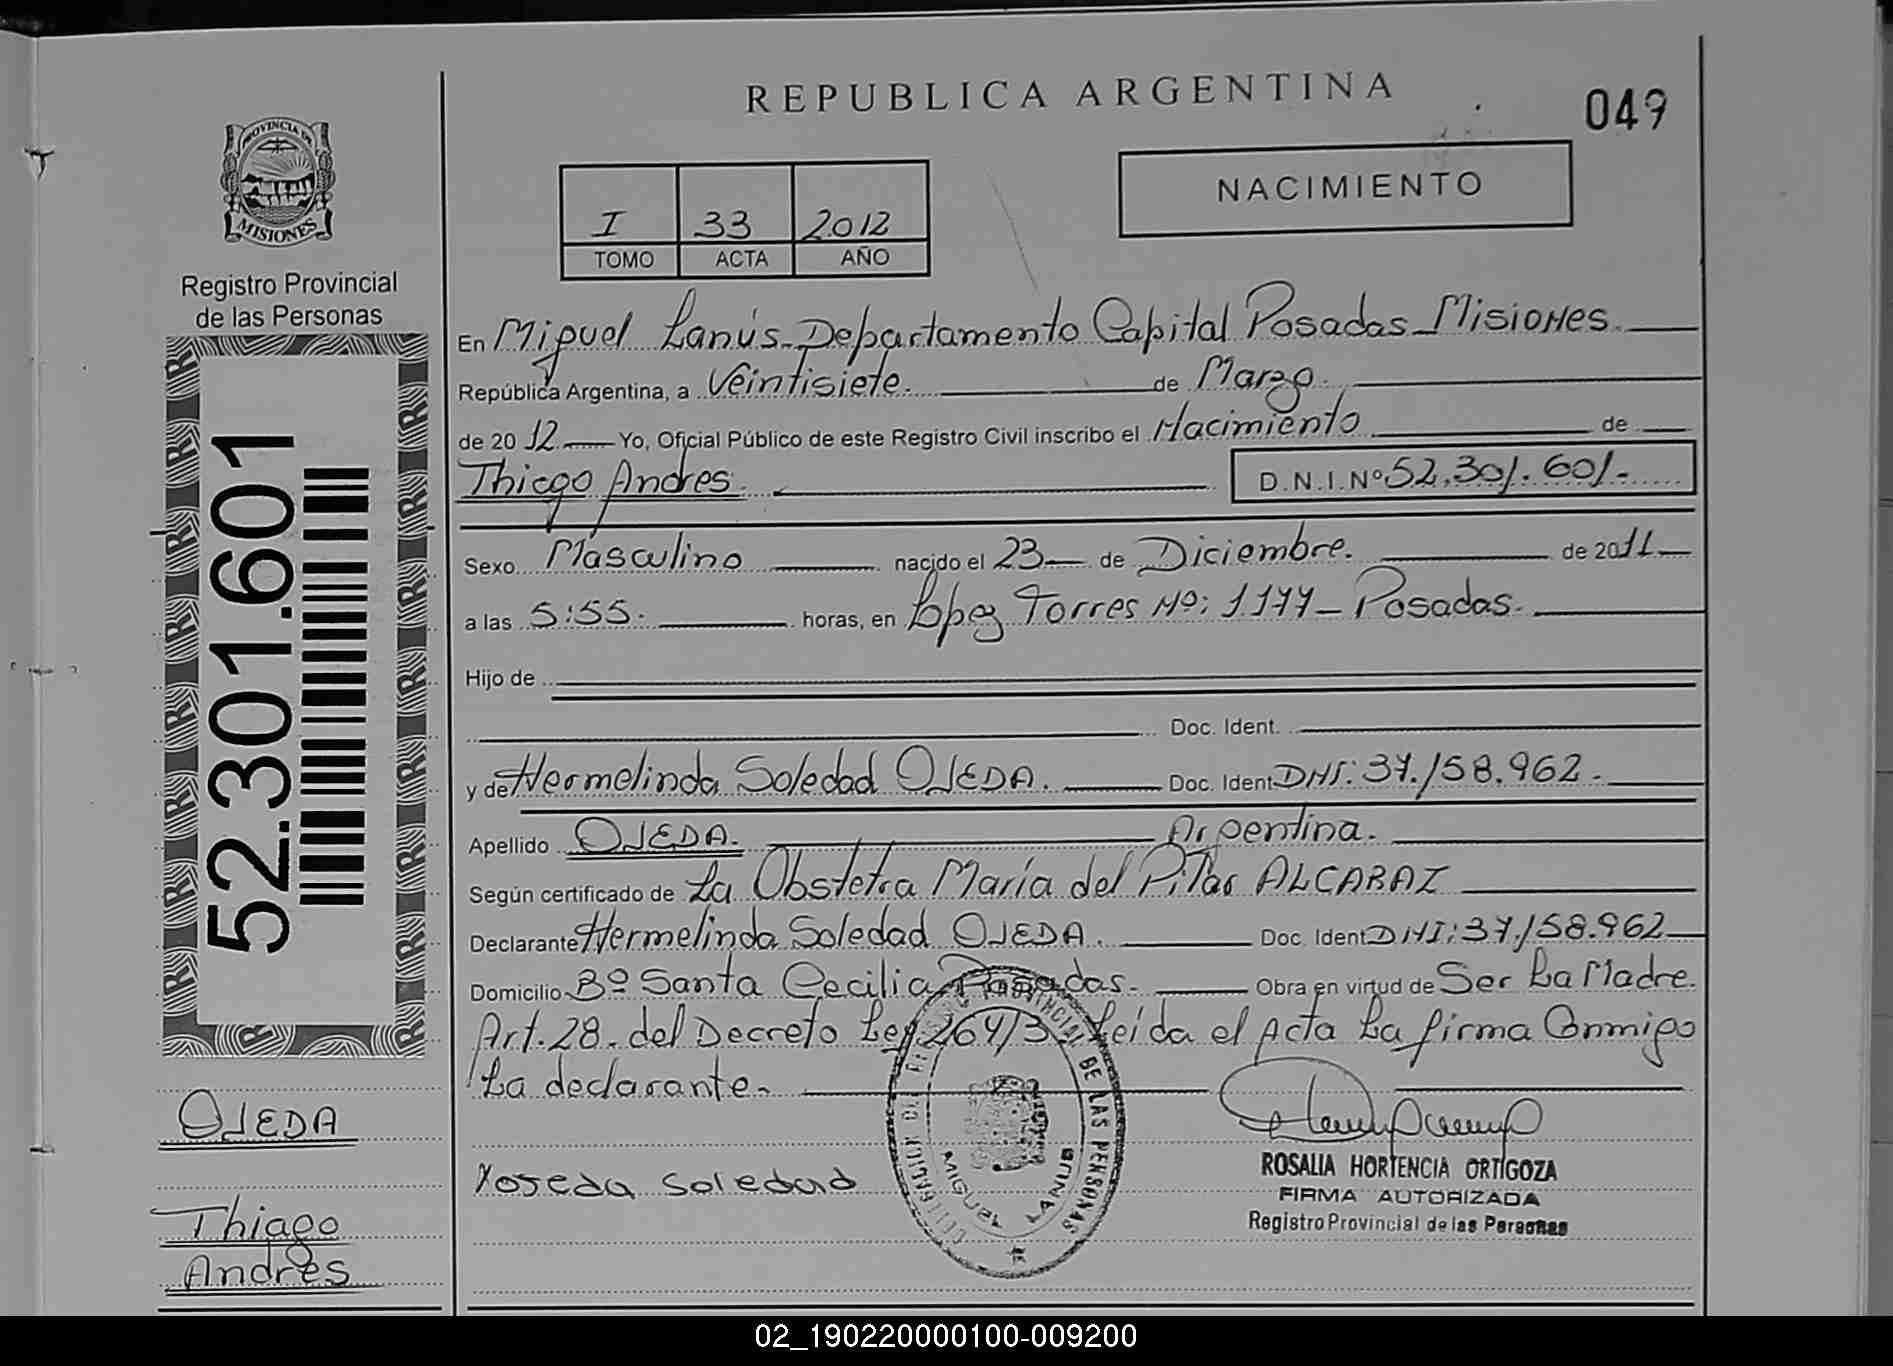 REPUBLICA ARGENTINA
049
PROVINCIA DE
MISIONES
Registro Provincial
de las Personas
I 33 2012
TOMO ACTA AÑO
NACIMIENTO
En Miguel Lanús - Departamento Capital Posadas - Misiones
República Argentina, a Veintisiete. de Marzo.
de 2012 Yo, Oficial Público de este Registro Civil inscribo el Nacimiento de
Thiago Andres. D.N.I.Nº 52.301.601.-
Sexo Masculino nacido el 23 de Diciembre. de 2011
a las 5:55. horas, en Lopez Torres Nº: 1177 - Posadas.
Hijo de
Doc. Ident.
y de Hermelinda Soledad OJEDA. Doc. Ident DNI: 37.158.962.
Apellido OJEDA. Argentina.
Según certificado de La Obstetra María del Pilar ALCARAZ
Declarante Hermelinda Soledad OJEDA. Doc. Ident DNI: 37.158.962
Domicilio Bº Santa Cecilia Posadas. Obra en virtud de Ser La Madre.
Art. 28. del Decreto Ley Leída el Acta La firma Conmigo
La declarante.
52.301.601
OJEDA
Thiago
Andres
Soledad
PROVINCIAL DE LAS PERSONAS
MIGUEL LANUS
ROSALIA HORTENCIA ORTIGOZA
FIRMA AUTORIZADA
Registro Provincial de las Personas
02_190220000100-009200